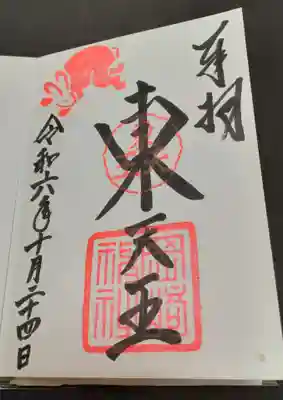 奉拝
東天王
岡崎
神社
令和六年十月二十四日